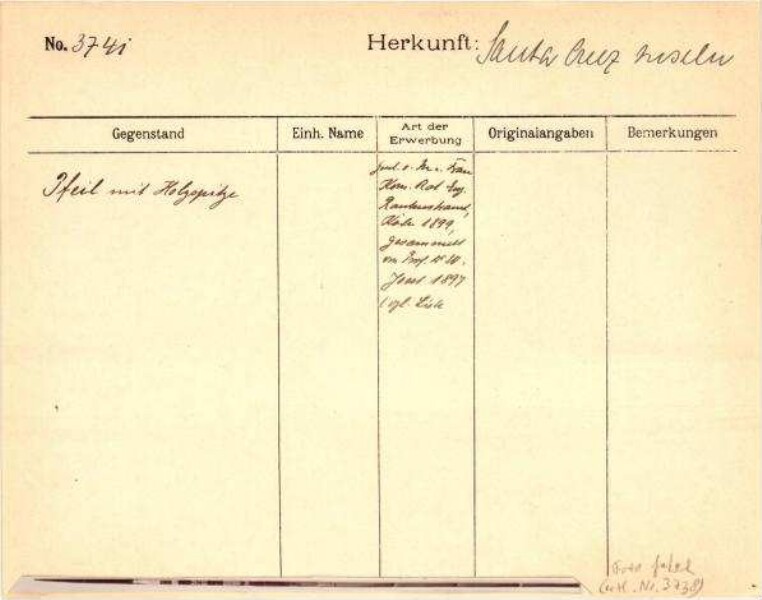 No. 3741
Herkunft: Santa Cruz Inseln
Gegenstand
Einh. Name
Art der
Erwerbung
Originalangaben
Bemerkungen
Pfeil mit Holzspitze
Gesch. v. Hr. u. Frau
Kom. Rat Eug.
Rautenstrauch,
Köln 1899,
gesammelt
von Prof. Dr. W.
Joest 1897
(vgl. Liste
Foto fehlt
Nr. 3738)